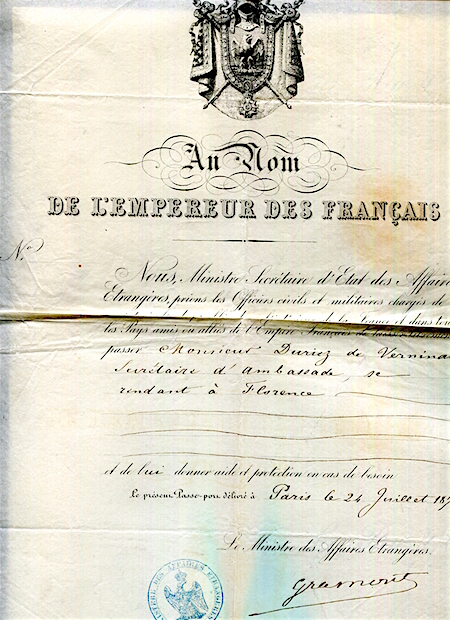 Au Nom
DE L'EMPEREUR DES FRANÇAIS
N.°
Nous, Ministre Secrétaire d'Etat des Affaire
Etrangères, prions les Officiers civils et militaires chargés de
et dans tou
les Pays amis ou alliés de l'Empire Français de laisser
passer Monsieur Duriez de Vernina
Secrétaire d'ambassade, se
rendant à Florence
et de lui donner aide et protection en cas de besoin
Le présent Passe-port délivré à Paris le 24 Juillet 187
Le Ministre des Affaires Etrangères,
Gramont
DES AFFAIRES ETRANGÈRES